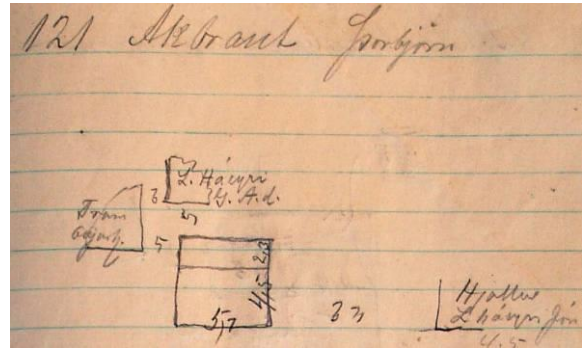 121 Akbraut Þorbjörn
L. Háeyri
3 G. A. d.
5
Fram
5
2,3
4,5
5,7
32
Hjallur
L Háeyri Jón
4.5